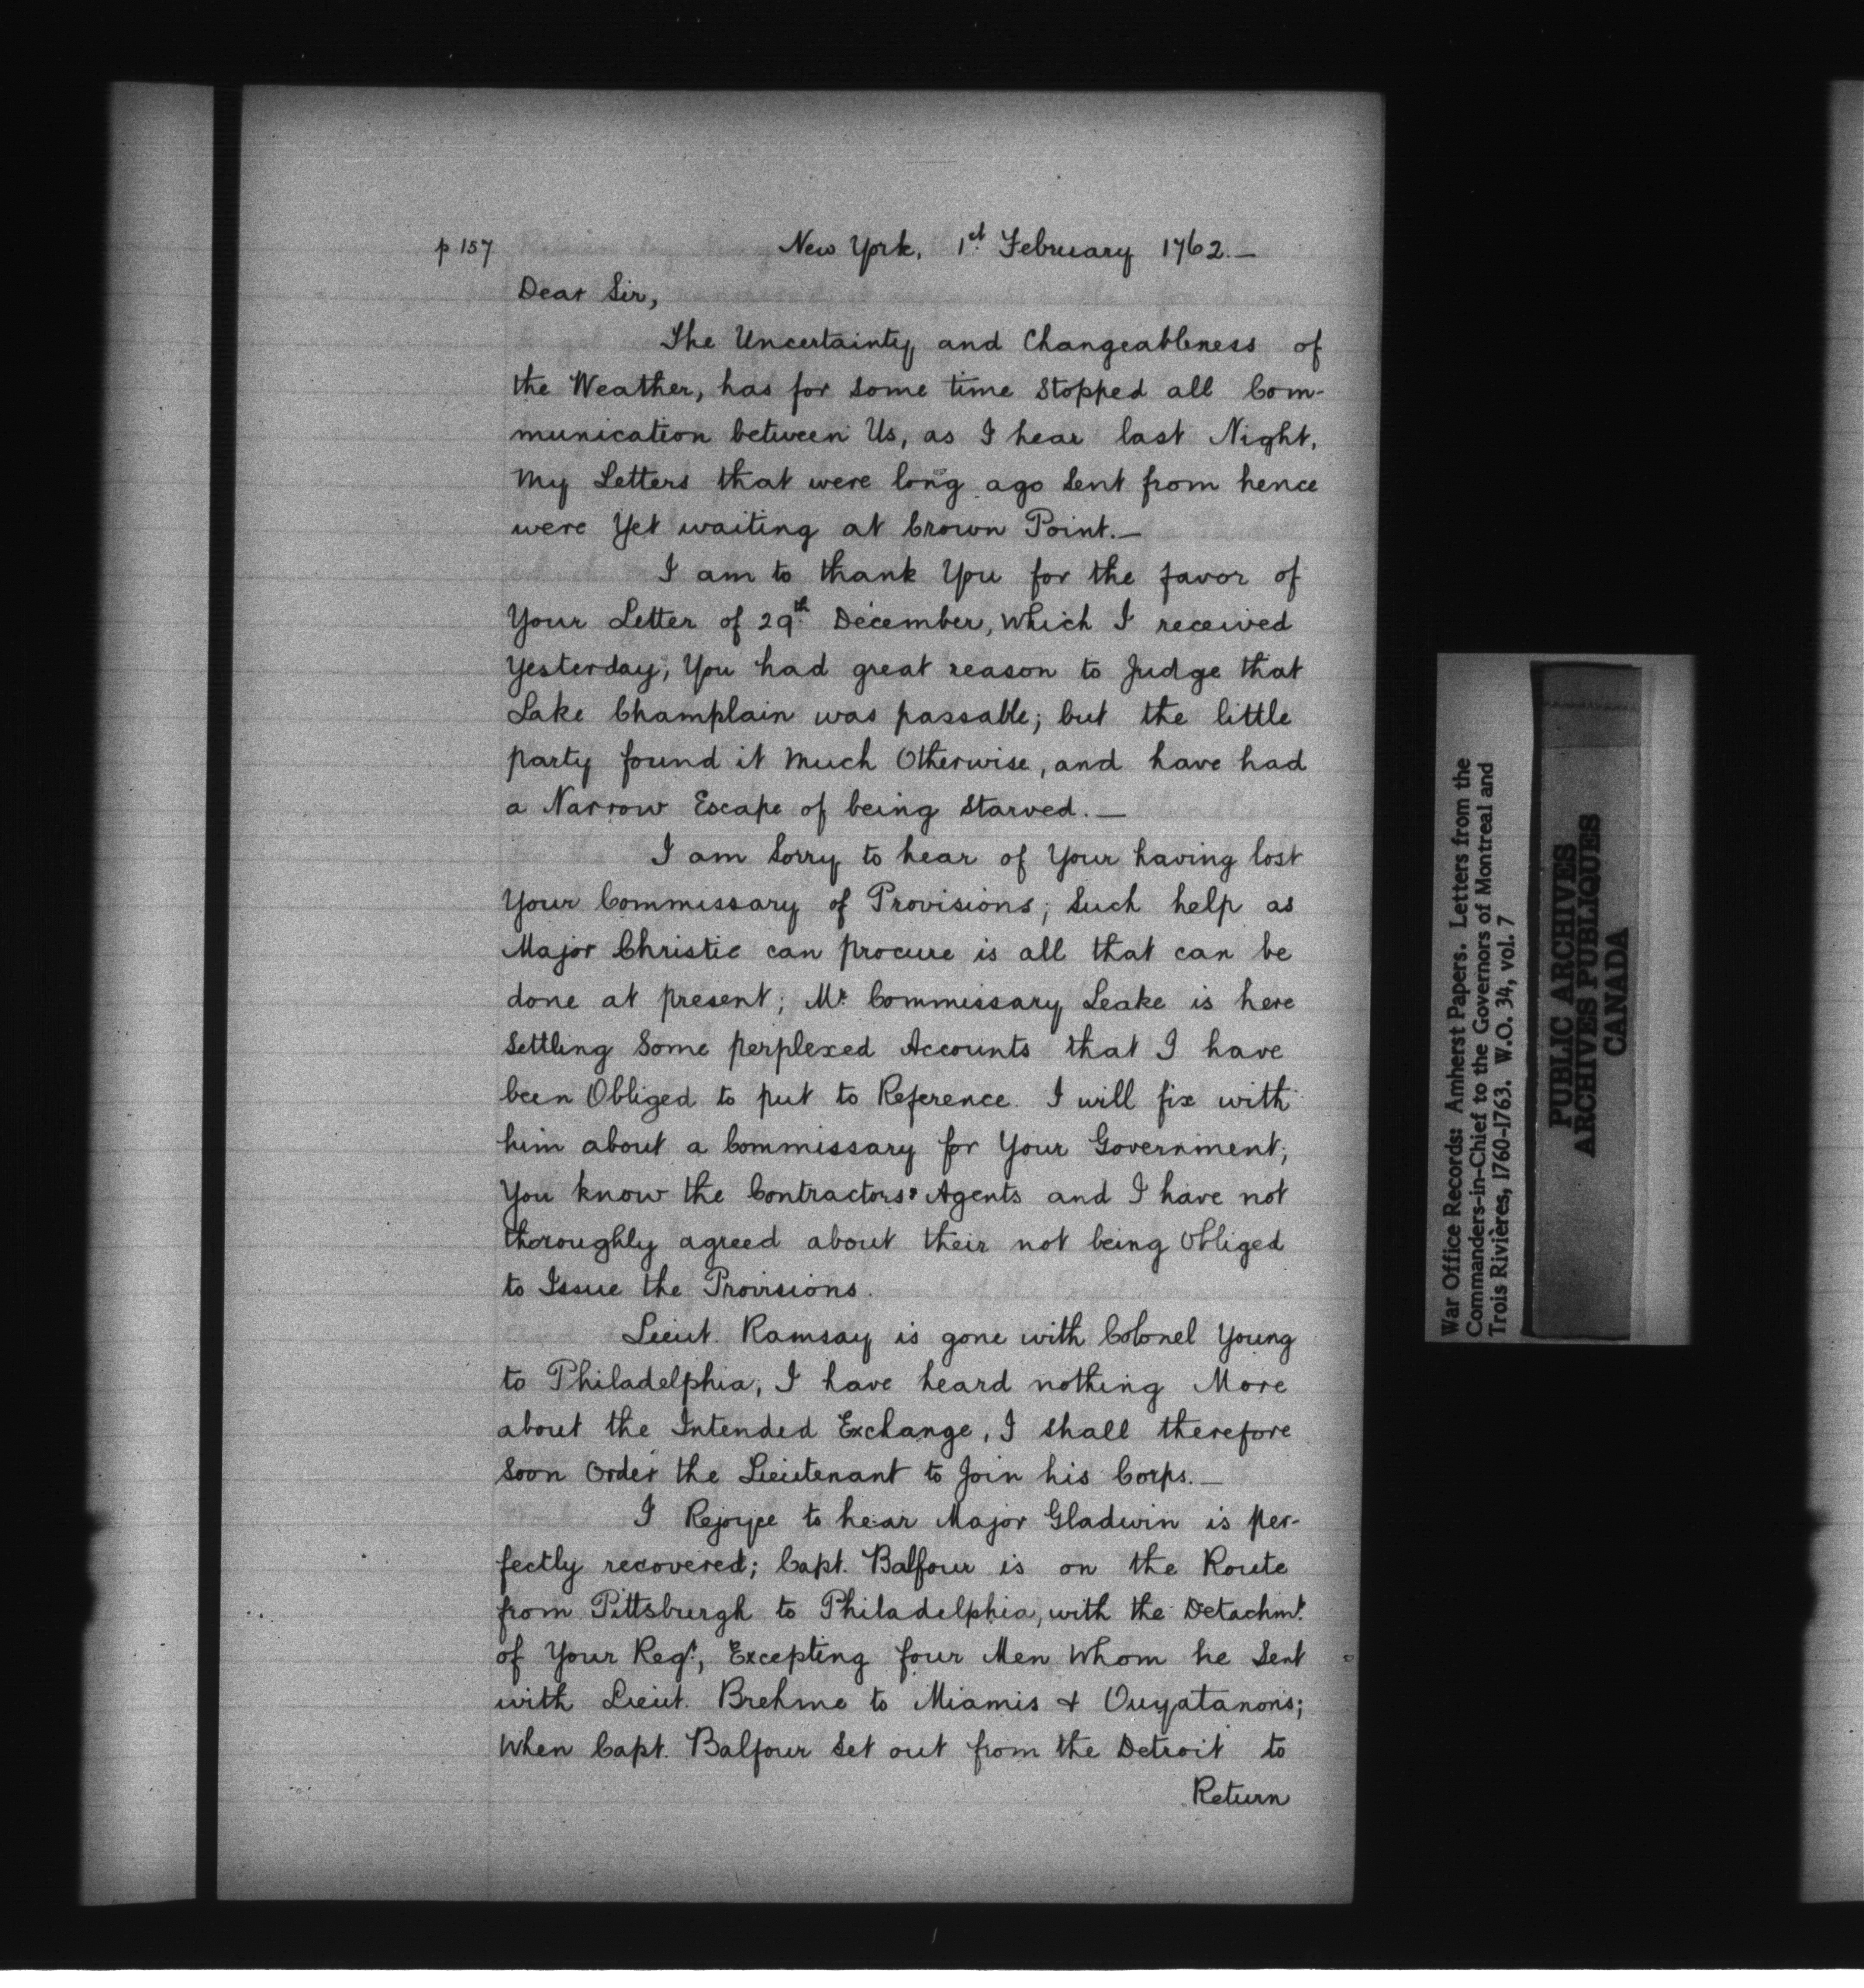 p 157
New York, 1st February 1762.—
Dear Sir,
The Uncertainty and Changeableness of
the Weather, has for some time Stopped all Com-
munication between Us, as I hear last Night,
My Letters that were long ago Sent from hence
were Yet waiting at Crown Point.—
I am to thank You for the favor of
Your Letter of 29th December, Which I received
Yesterday; You had great reason to Judge that
Lake Champlain was passable; but the little
party found it Much Otherwise, and have had
a Narrow Escape of being Starved.—
I am Sorry to hear of Your having lost
Your Commissary of Provisions; Such help as
Major Christie can procure is all that can be
done at present; Mr Commissary Leake is here
Settling Some perplexed Accounts that I have
been Obliged to put to Reference. I will fix with
him about a Commissary for Your Government;
You know the Contractors' Agents and I have not
thoroughly agreed about their not being Obliged
to Issue the Provisions.
Lieut. Ramsay is gone with Colonel Young
to Philadelphia; I have heard nothing More
about the Intended Exchange, I shall therefore
Soon Order the Lieutenant to Join his Corps.—
I Rejoyce to hear Major Gladwin is per-
fectly recovered; Capt. Balfour is on the Route
from Pittsburgh to Philadelphia, with the Detachmt.
of Your Regt., Excepting four Men Whom he Sent
with Lieut. Brehme to Miamis & Ouyatanons;
When Capt. Balfour Set out from the Detroit to
Return
War Office Records: Amherst Papers. Letters from the
Commanders-in-Chief to the Governors of Montreal and
Trois Rivières, 1760-1763. W.O. 34, vol. 7
PUBLIC ARCHIVES
ARCHIVES PUBLIQUES
CANADA